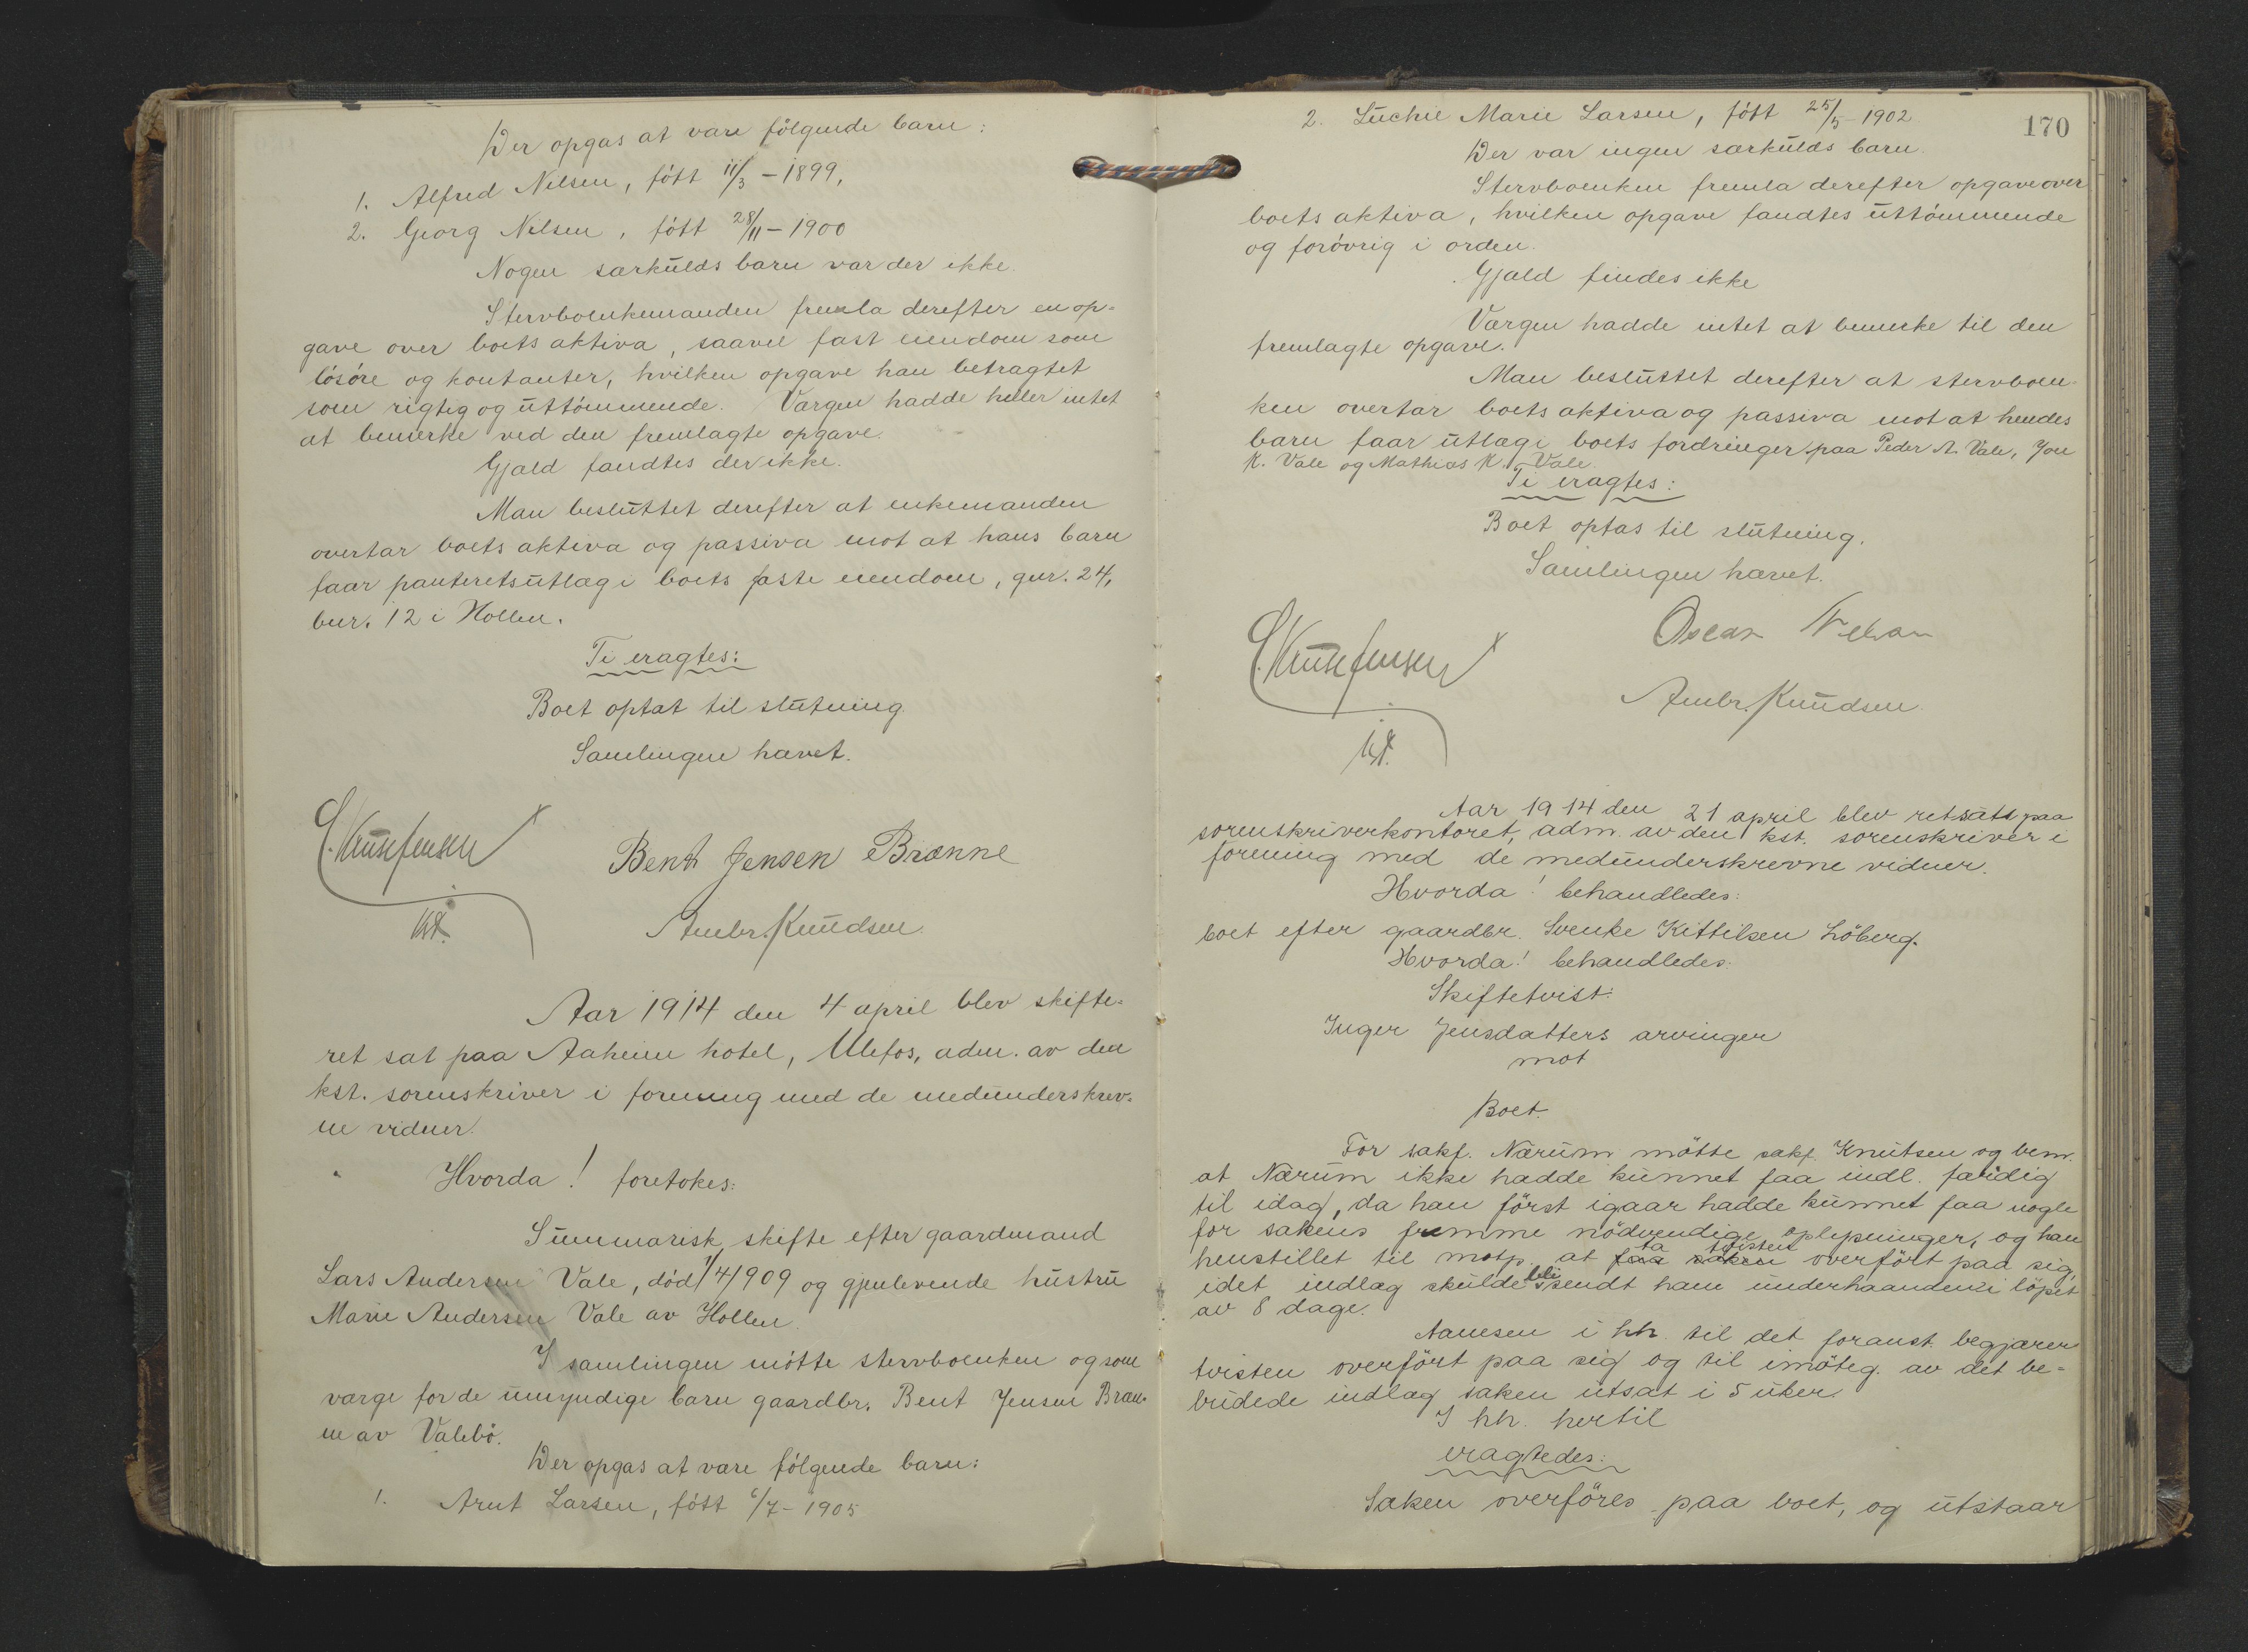 Der opgas at være følgende barn:
1. Alfred Nilsen, født 11/3 - 1899,
2. Georg Nilsen, født 28/11 - 1900
Nogen særkulds barn var der ikke.
Stervboenkemanden fremla derefter en op-
gave over boets aktiva, saavel fast eiendom som
løsøre og kontanter, hvilken opgave han betragtet
som rigtig og uttømmende. Værgen hadde heller intet
at bemerke ved den fremlagte opgave.
Gjæld fandtes der ikke.
Man besluttet derefter at enkemanden
overtar boets aktiva og passiva mot at hans barn
faar panteretsutlæg i boets faste eiendom, gnr. 24,
bnr. 12 i Hollen.
Ti eragtes:
Boet optat til slutning.
Samlingen hævet.
Kruse Jensen
kst.
Bent Jensen Brænne
Ambr. Knudsen
Aar 1914 den 4 april blev skifte-
ret sat paa Aaheim hotel, Ulefos, adm. av den
kst. sorenskriver i forening med de medunderskrev-
ne vidner.
Hvorda! foretokes:
Summarisk skifte efter gaardmand
Lars Andersen Vale, død 1/4 1909 og gjenlevende hustru
Marie Andersen Vale av Hollen.
I samlingen møtte stervboenken og som
værge for de umyndige barn gaardbr. Bent Jensen Bræn-
ne av Valebø.
Der opgas at være følgende barn:
1. Arnt Larsen, født 6/7 - 1905
170
2. Luchie Marie Larsen, født 25/5 - 1902
Der var ingen særkulds barn.
Stervboenken fremla derefter opgave over
boets aktiva, hvilken opgave fandtes uttømmende
og forøvrig i orden.
Gjæld findes ikke
Værgen hadde intet at bemerke til den
fremlagte opgave.
Man besluttet derefter at stervboen-
ken overtar boets aktiva og passiva mot at hendes
barn faar utlæg i boets fordringer paa Peder A. Vale, Jon
K. Vale og Mathias K. Vale.
Ti eragtes:
Boet optas til slutning.
Samlingen hævet.
Kruse Jensen
kst.
Oscar Nilsen
Ambr. Knudsen
Aar 1914 den 21 april blev ret sat paa
sorenskriverkontoret, adm. av den kst. sorenskriver i
forening med de medunderskrevne vidner.
Hvorda! behandledes:
boet efter gaardbr. Svenke Kittilsen Løberg.
Hvorda! behandledes:
Skiftetvist:
Inger Jensdatters arvinger
mot
Boet.
For sakf. Nærum møtte sakf. Knutsen og bem.
at Nærum ikke hadde kunnet faa indl. færdig
til idag, da han først igaar hadde kunnet faa nogle
for sakens fremme nødvendige oplysninger, og han
henstillet til motp. at ta tvisten overført paa sig,
idet indlæg skulde bli sendt ham underhaanden i løpet
av 8 dage.
Aamesen i hh. til det foranst. begjærer
tvisten overført paa sig og til imøteg. av det be-
budede indlæg saken utsat i 5 uker.
I hh. hertil
eragtedes:
Saken overføres paa boet, og utstaar